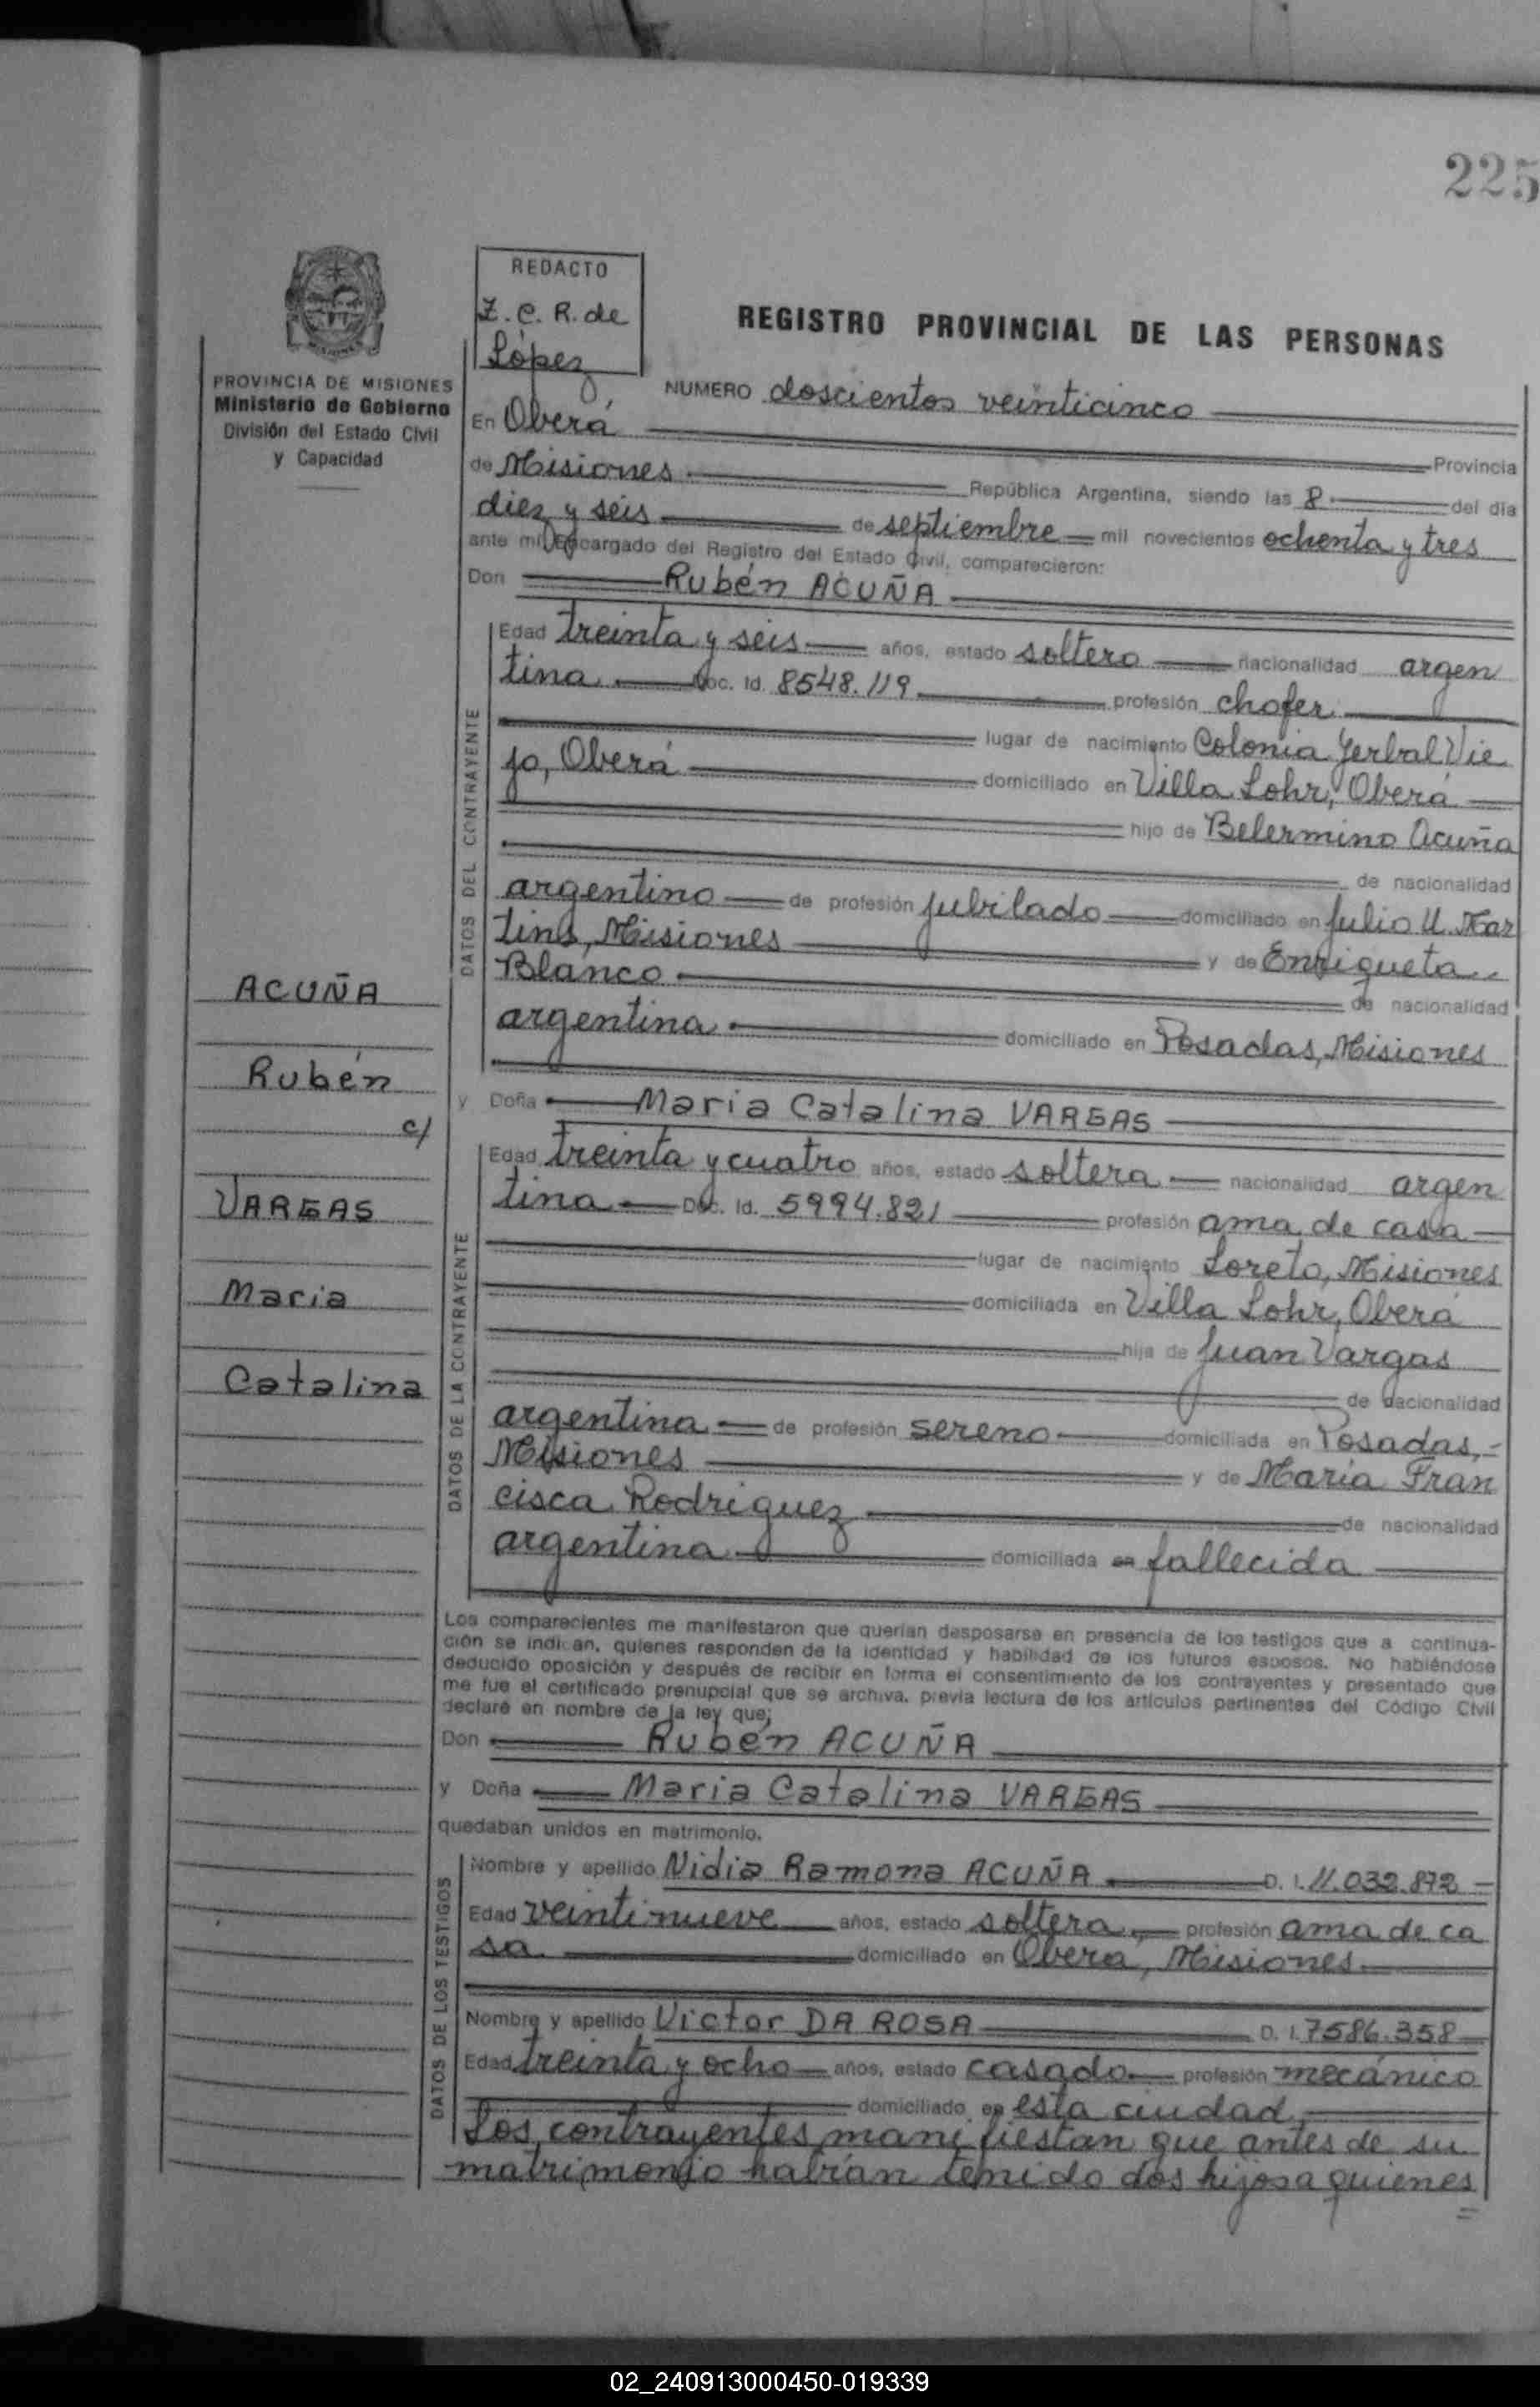 225
REDACTO
Z. C. R. de
López
PROVINCIA DE MISIONES
Ministerio de Gobierno
División del Estado Civil
y Capacidad
REGISTRO PROVINCIAL DE LAS PERSONAS
NUMERO doscientos veinticinco
En Oberá
Provincia
de Misiones República Argentina, siendo las 8 del día
diez y seis de septiembre mil novecientos ochenta y tres
ante mi Encargado del Registro del Estado Civil, comparecieron:
Don Rubén ACUÑA
DATOS DEL CONTRAYENTE
Edad treinta y seis años, estado soltero nacionalidad argen
tina Doc. Id. 8548.119 profesión chofer
lugar de nacimiento Colonia Yerbal Vie
jo, Oberá domiciliado en Villa Lohr, Oberá
hijo de Belermino Acuña
de nacionalidad
argentino de profesión jubilado domiciliado en Julio U. Mar
tins, Misiones y de Enriqueta
Blanco de nacionalidad
argentina domiciliado en Posadas, Misiones
y Doña Maria Catalina VARGAS
DATOS DE LA CONTRAYENTE
Edad treinta y cuatro años, estado soltera nacionalidad argen
tina Doc. Id. 5994.821 profesión ama de casa
lugar de nacimiento Loreto, Misiones
domiciliada en Villa Lohr, Oberá
hija de Juan Vargas
de nacionalidad
argentina de profesión sereno domiciliada en Posadas,
Misiones y de María Fran
cisca Rodriguez de nacionalidad
argentina domiciliada en fallecida
ACUÑA
Rubén
c/
VARGAS
Maria
Catalina
Los comparecientes me manifestaron que querían desposarse en presencia de los testigos que a continua-
ción se indican, quienes responden de la identidad y habilidad de los futuros esposos. No habiéndose
deducido oposición y después de recibir en forma el consentimiento de los contrayentes y presentado que
me fue el certificado prenupcial que se archiva, previa lectura de los artículos pertinentes del Código Civil
declaré en nombre de la ley que;
Don Rubén ACUÑA
y Doña Maria Catalina VARGAS
quedaban unidos en matrimonio.
DATOS DE LOS TESTIGOS
Nombre y apellido Nidia Ramona ACUÑA D. I. 11.032.872
Edad veintinueve años, estado soltera, profesión ama de ca
sa domiciliado en Oberá, Misiones
Nombre y apellido Victor DA ROSA D. I. 7586.358
Edad treinta y ocho años, estado casado profesión mecánico
domiciliado en esta ciudad,
Los contrayentes manifiestan que antes de su
matrimonio habían tenido dos hijos a quienes
02_240913000450-019339